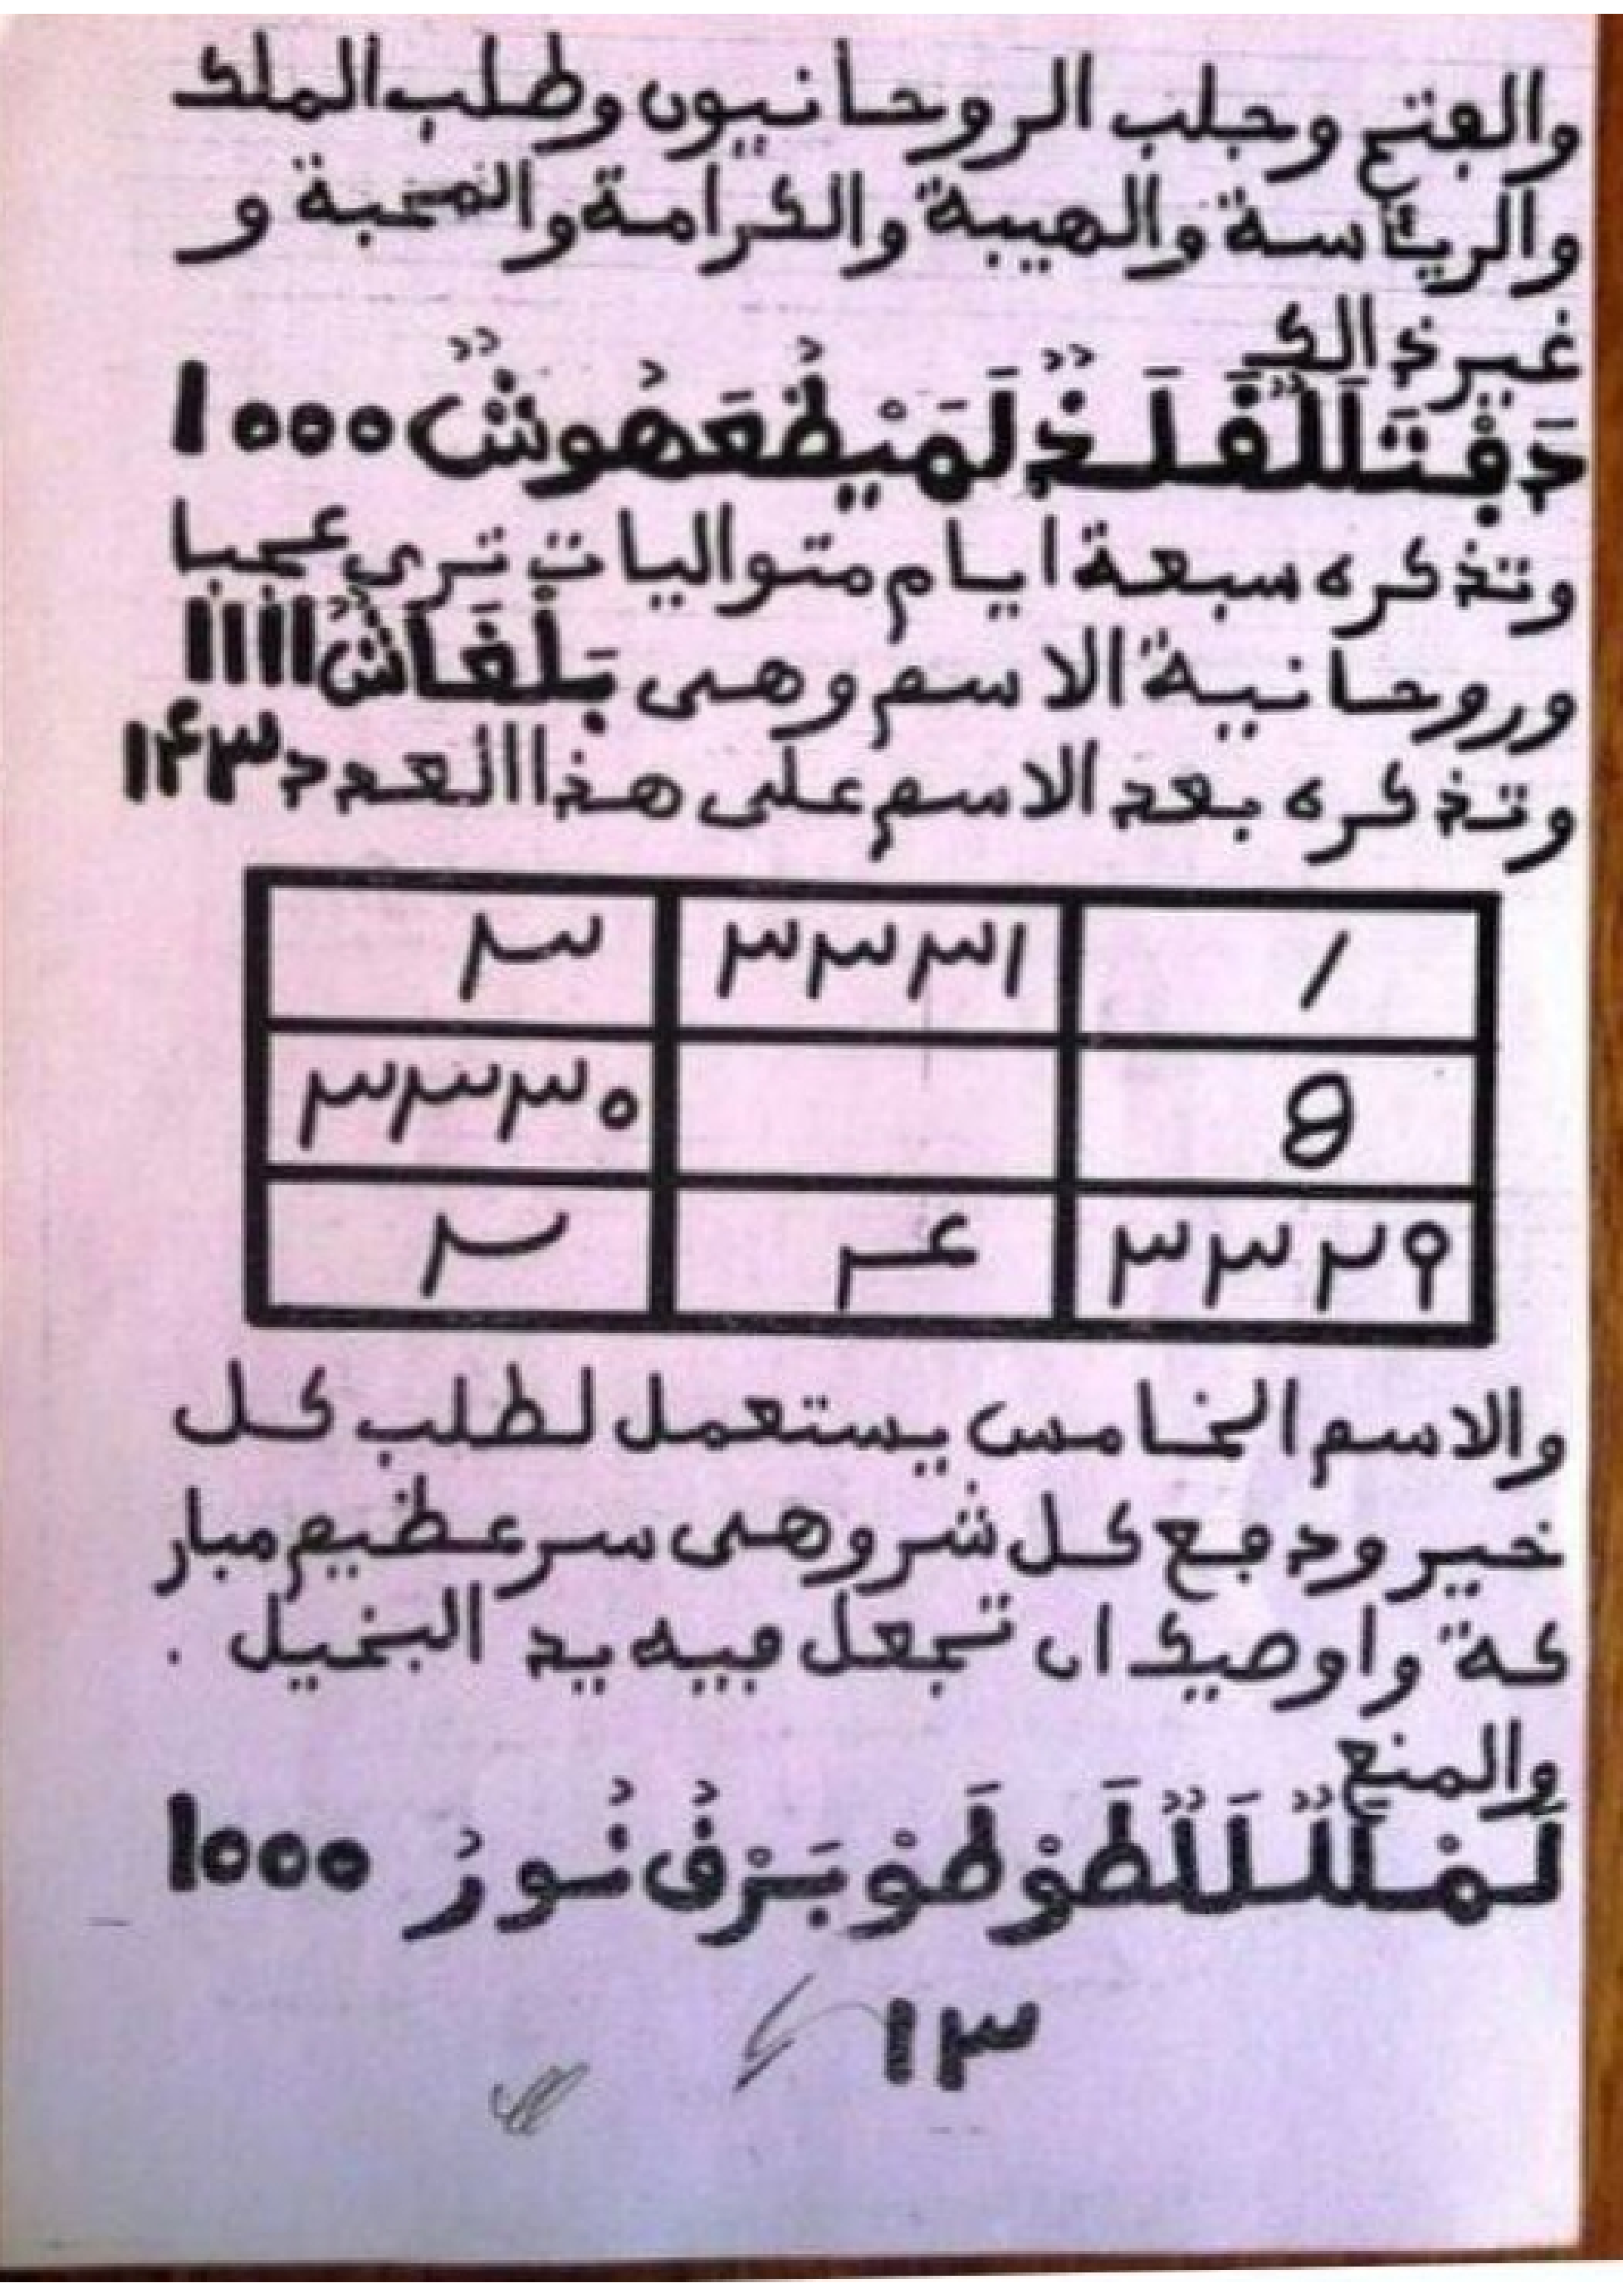 والفتح وجلب الروحانيون وطلب الملك
والرياسة والهيبة والكرامة والمحبة و
غير ذالك
1000
وتذكره سبعة ايام متواليات ترى عجبا
وروحانية الاسم وهى بَلْغَاشٌ ١١١١
وتذكره بعد الاسم على هذا العدد ١۴٣
١ ٣٣٣١ ٣
٣٣٣٠
٣٣٢٩ ۴ ٢
والاسم الخامس يستعمل لطلب كل
خير ودفع كل شر وهى سر عظيم مبار
كة واوصيك ان تجعل فيه يد البخيل .
والمنع
1000
١٣